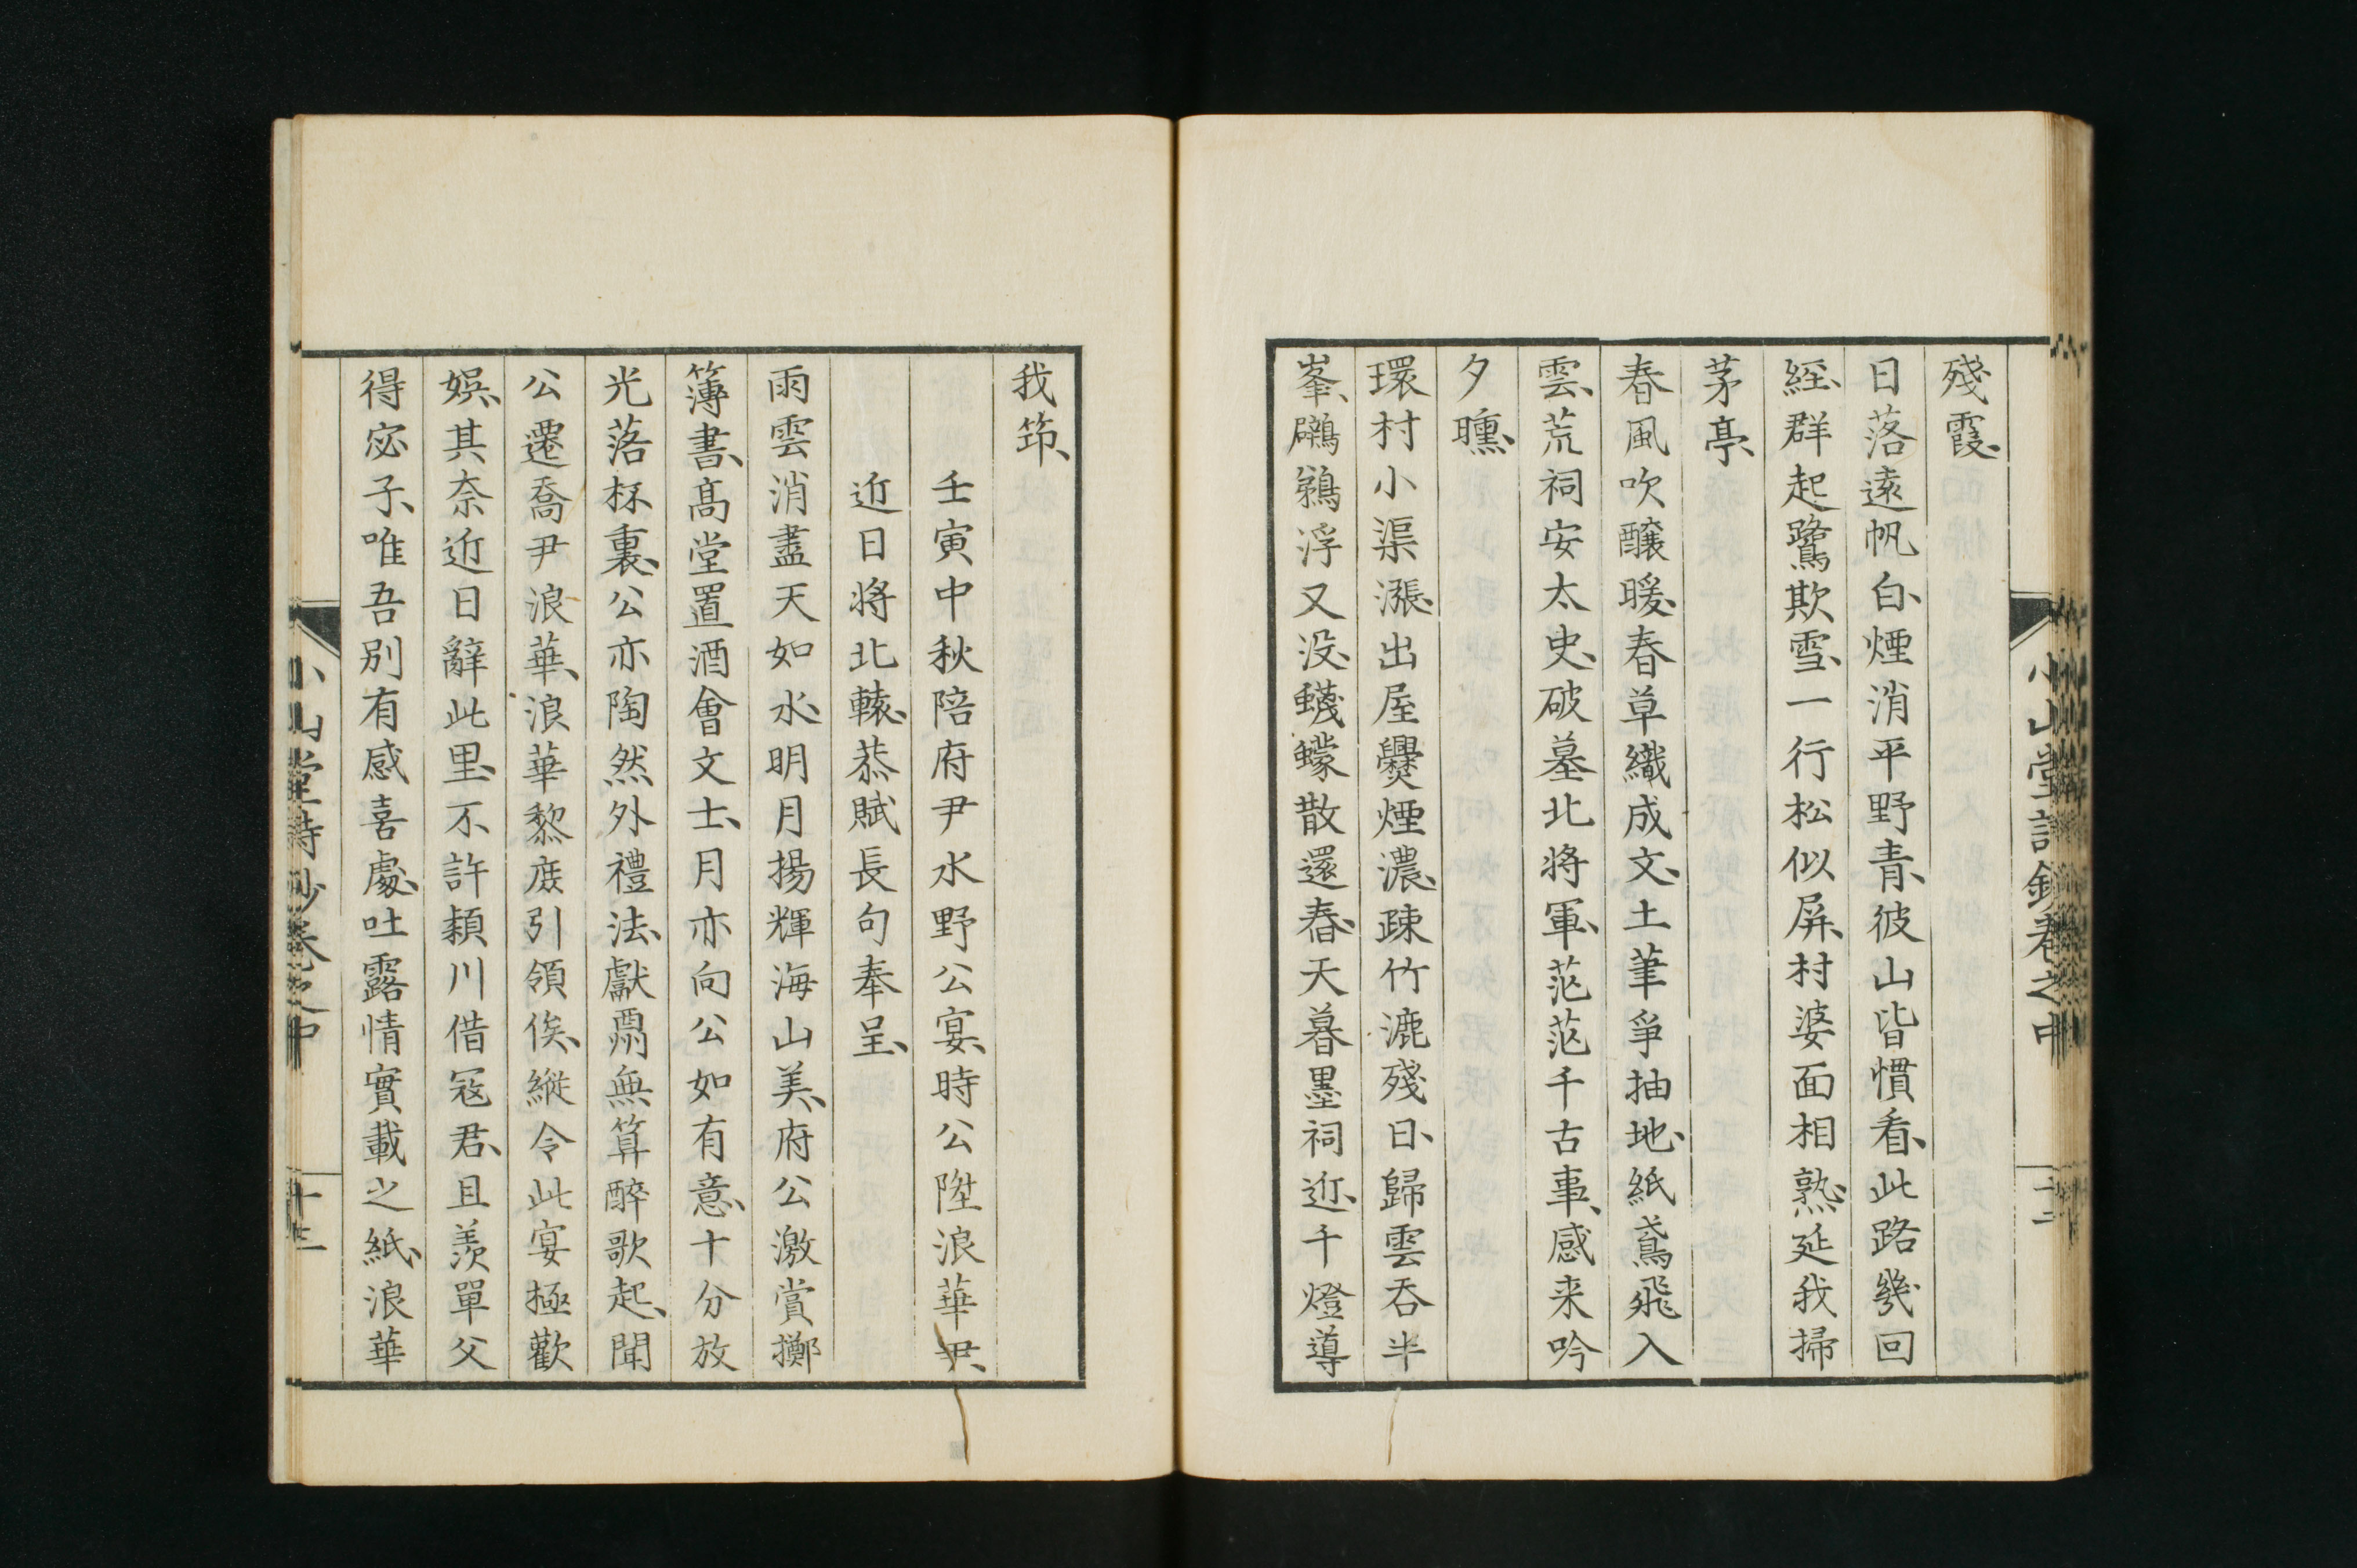 小山堂詩鈔卷之中
十二
殘霞、
日落遠帆白、煙消平野青、彼山皆慣看、此路幾回
經、群起鷺欺雪、一行松似屏、村婆面相熟、延我掃
茅亭、
春風吹釀暖、春草織成文、土筆爭抽地、紙鳶飛入
雲、荒祠安太史、破墓北将軍、茫茫千古事、感来吟
夕曛、
環村小渠漲、出屋爨煙濃、疎竹漉殘日、歸雲吞半
峯、鸊鵜浮又没、蠛蠓散還舂、天暮墨祠近、千燈導
我筇、
壬寅中秋陪府尹水野公宴、時公陞浪華尹、
近日将北轅、恭賦長句奉呈、
雨雲消盡天如水、明月揚輝海山美、府公激賞擲
簿書、髙堂置酒會文士、月亦向公如有意、十分放
光落杯裏、公亦陶然外禮法、獻酬無算醉歌起、聞
公遷喬尹浪華、浪華黎庶引領俟、縦令此宴極歡
娯、其奈近日辭此里、不許穎川借冦君、且羨單父
得宓子、唯吾別有感喜處、吐露情實載之紙、浪華
小山堂詩鈔卷之中
十三